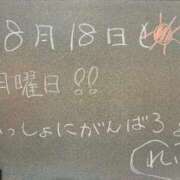 8月18日
月曜日!!
っしょにがんばろ
れ